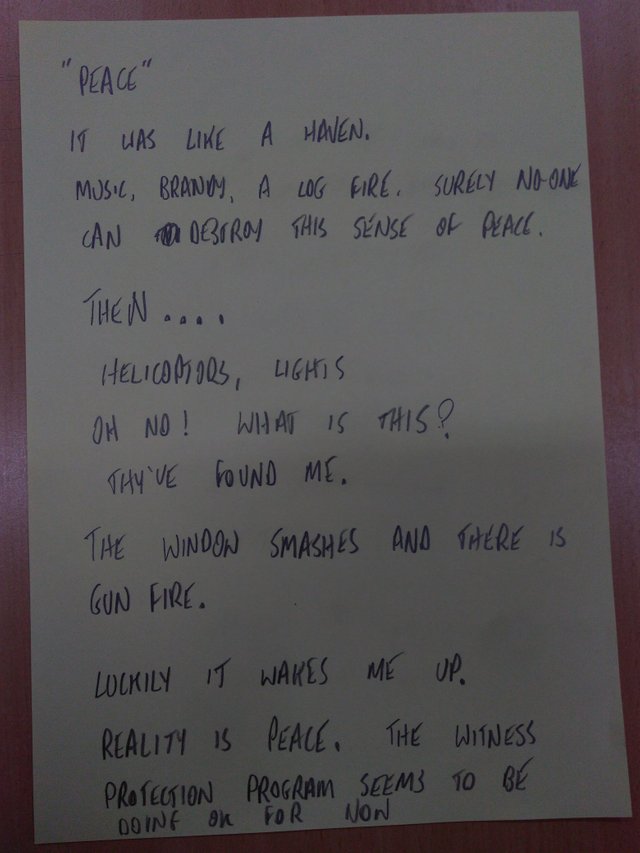 "PEACE"
IT WAS LIKE A HAVEN.
MUSIC, BRANDY, A LOG FIRE. SURELY NO-ONE
CAN DESTROY THIS SENSE OF PEACE.
THEN....
HELICOPTORS, LIGHTS
OH NO! WHAT IS THIS?
THY'VE FOUND ME.
THE WINDOW SMASHES AND THERE IS
GUN FIRE.
LUCKILY IT WAKES ME UP.
REALITY IS PEACE. THE WITNESS
PROTECTION PROGRAM SEEMS TO BE
DOING OK FOR NOW